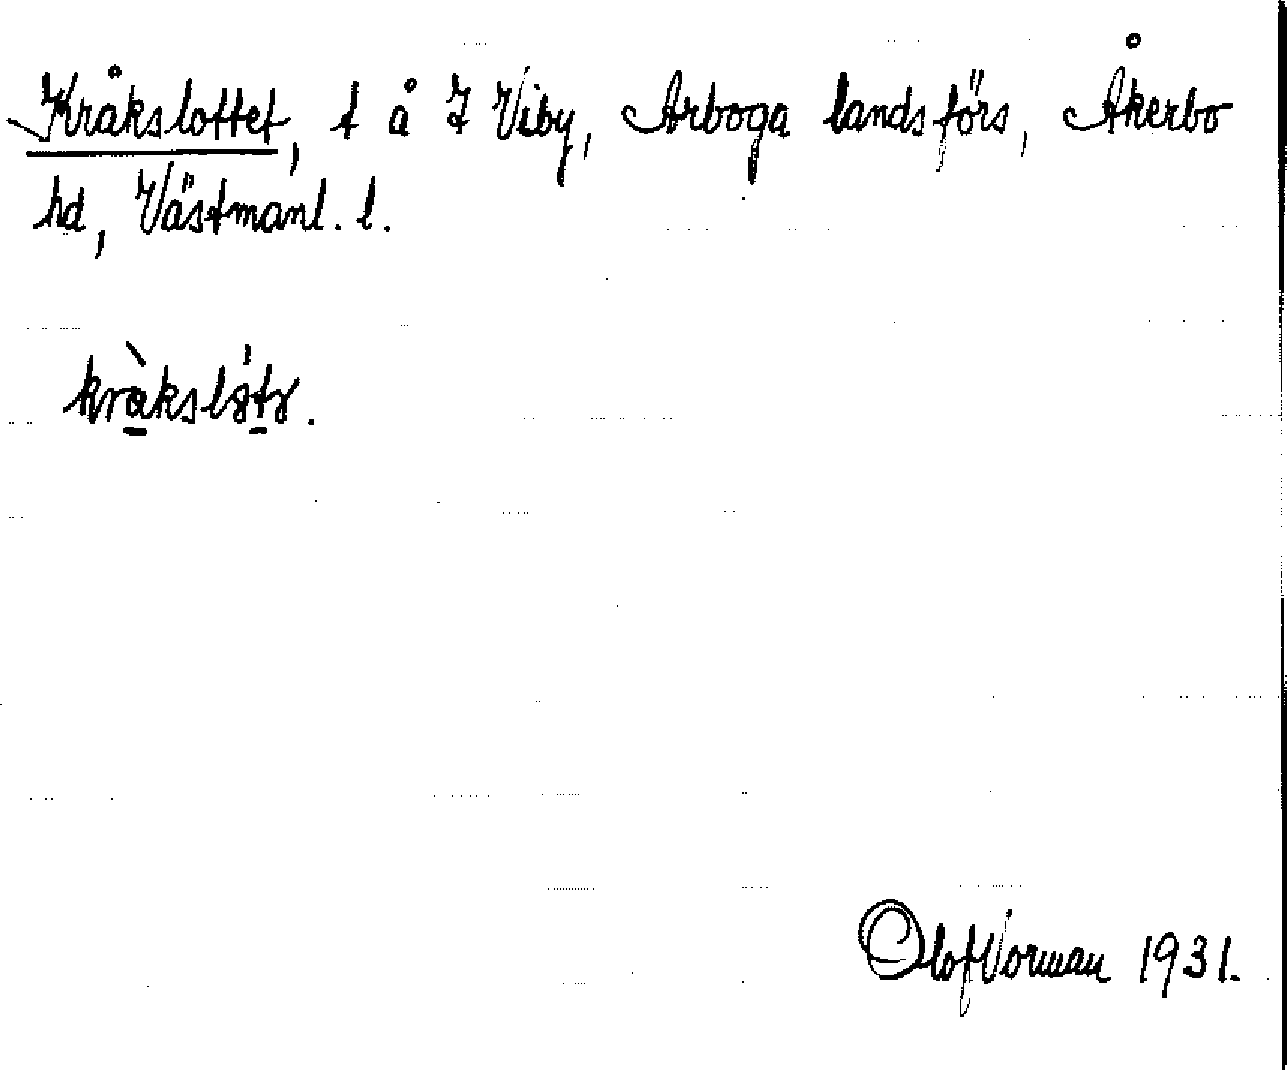 Kråkslottet, t å I Viby, Arboga landsförs, Åkerbo
hd, Västmanl. l.
Olof Vorman 1931.